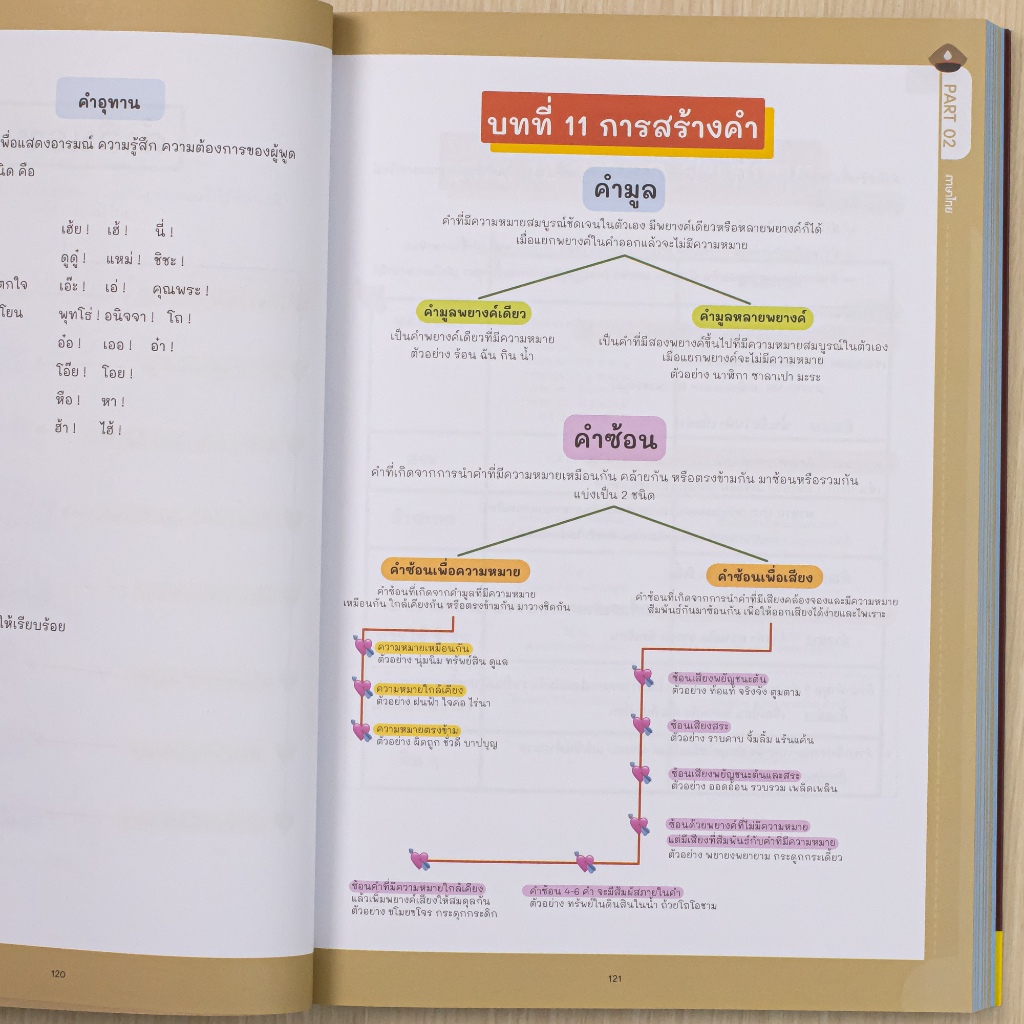 คำอุทาน
พื่อแสดงอารมณ์ ความรู้สึก ความต้องการของผู้พูด
นิด คือ
เฮ้ย ! เฮ้ ! นี่ !
ดูดู๋ ! แหม่ ! ชิชะ !
ตกใจ เอ๊ะ ! เอ่ ! คุณพระ !
โยน พุทโธ่ ! อนิจจา ! โถ !
อ๋อ ! เออ ! อ๋ำ !
โอ๊ย ! โอย !
หือ ! หา !
ฮ้า ! ไฮ้ !
ให้เรียบร้อย
120
PART 02
ภาษาไทย
บทที่ 11 การสร้างคำ
คำมูล
คำที่มีความหมายสมบูรณ์ชัดเจนในตัวเอง มีพยางค์เดียวหรือหลายพยางค์ก็ได้
เมื่อแยกพยางค์ในคำออกแล้วจะไม่มีความหมาย
คำมูลพยางค์เดียว
เป็นคำพยางค์เดียวที่มีความหมาย
ตัวอย่าง ร้อน ฉัน กิน น้ำ
คำมูลหลายพยางค์
เป็นคำที่มีสองพยางค์ขึ้นไปที่มีความหมายสมบูรณ์ในตัวเอง
เมื่อแยกพยางค์จะไม่มีความหมาย
ตัวอย่าง นาฬิกา ซาลาเปา มะระ
คำซ้อน
คำที่เกิดจากการนำคำที่มีความหมายเหมือนกัน คล้ายกัน หรือตรงข้ามกัน มาซ้อนหรือรวมกัน
แบ่งเป็น 2 ชนิด
คำซ้อนเพื่อความหมาย
คำซ้อนที่เกิดจากคำมูลที่มีความหมาย
เหมือนกัน ใกล้เคียงกัน หรือตรงข้ามกัน มาวางชิดกัน
ความหมายเหมือนกัน
ตัวอย่าง นุ่มนิ่ม ทรัพย์สิน ดูแล
ความหมายใกล้เคียง
ตัวอย่าง ฝนฟ้า ใจคอ ไร่นา
ความหมายตรงข้าม
ตัวอย่าง ผิดถูก ชั่วดี บาปบุญ
คำซ้อนเพื่อเสียง
คำซ้อนที่เกิดจากการนำคำที่มีเสียงคล้องจองและมีความหมาย
สัมพันธ์กันมาซ้อนกัน เพื่อให้ออกเสียงได้ง่ายและไพเราะ
ซ้อนเสียงพยัญชนะต้น
ตัวอย่าง ท้อแท้ จริงจัง ตูมตาม
ซ้อนเสียงสระ
ตัวอย่าง ราบคาบ จิ้มลิ้ม แร้นแค้น
ซ้อนเสียงพยัญชนะต้นและสระ
ตัวอย่าง ออดอ้อน รวบรวม เพลิดเพลิน
ซ้อนด้วยพยางค์ที่ไม่มีความหมาย
แต่มีเสียงที่สัมพันธ์กับคำที่มีความหมาย
ตัวอย่าง พยายงพยายาม กระดูกกระเดี้ยว
คำซ้อน 4-6 คำ จะมีสัมผัสภายในคำ
ตัวอย่าง ทรัพย์ในดินสินในน้ำ ถ้วยโถโอชาม
ซ้อนคำที่มีความหมายใกล้เคียง
แล้วเพิ่มพยางค์เสียงให้สมดุลกัน
ตัวอย่าง ขโมยขโจร กระดุกกระดิก
121